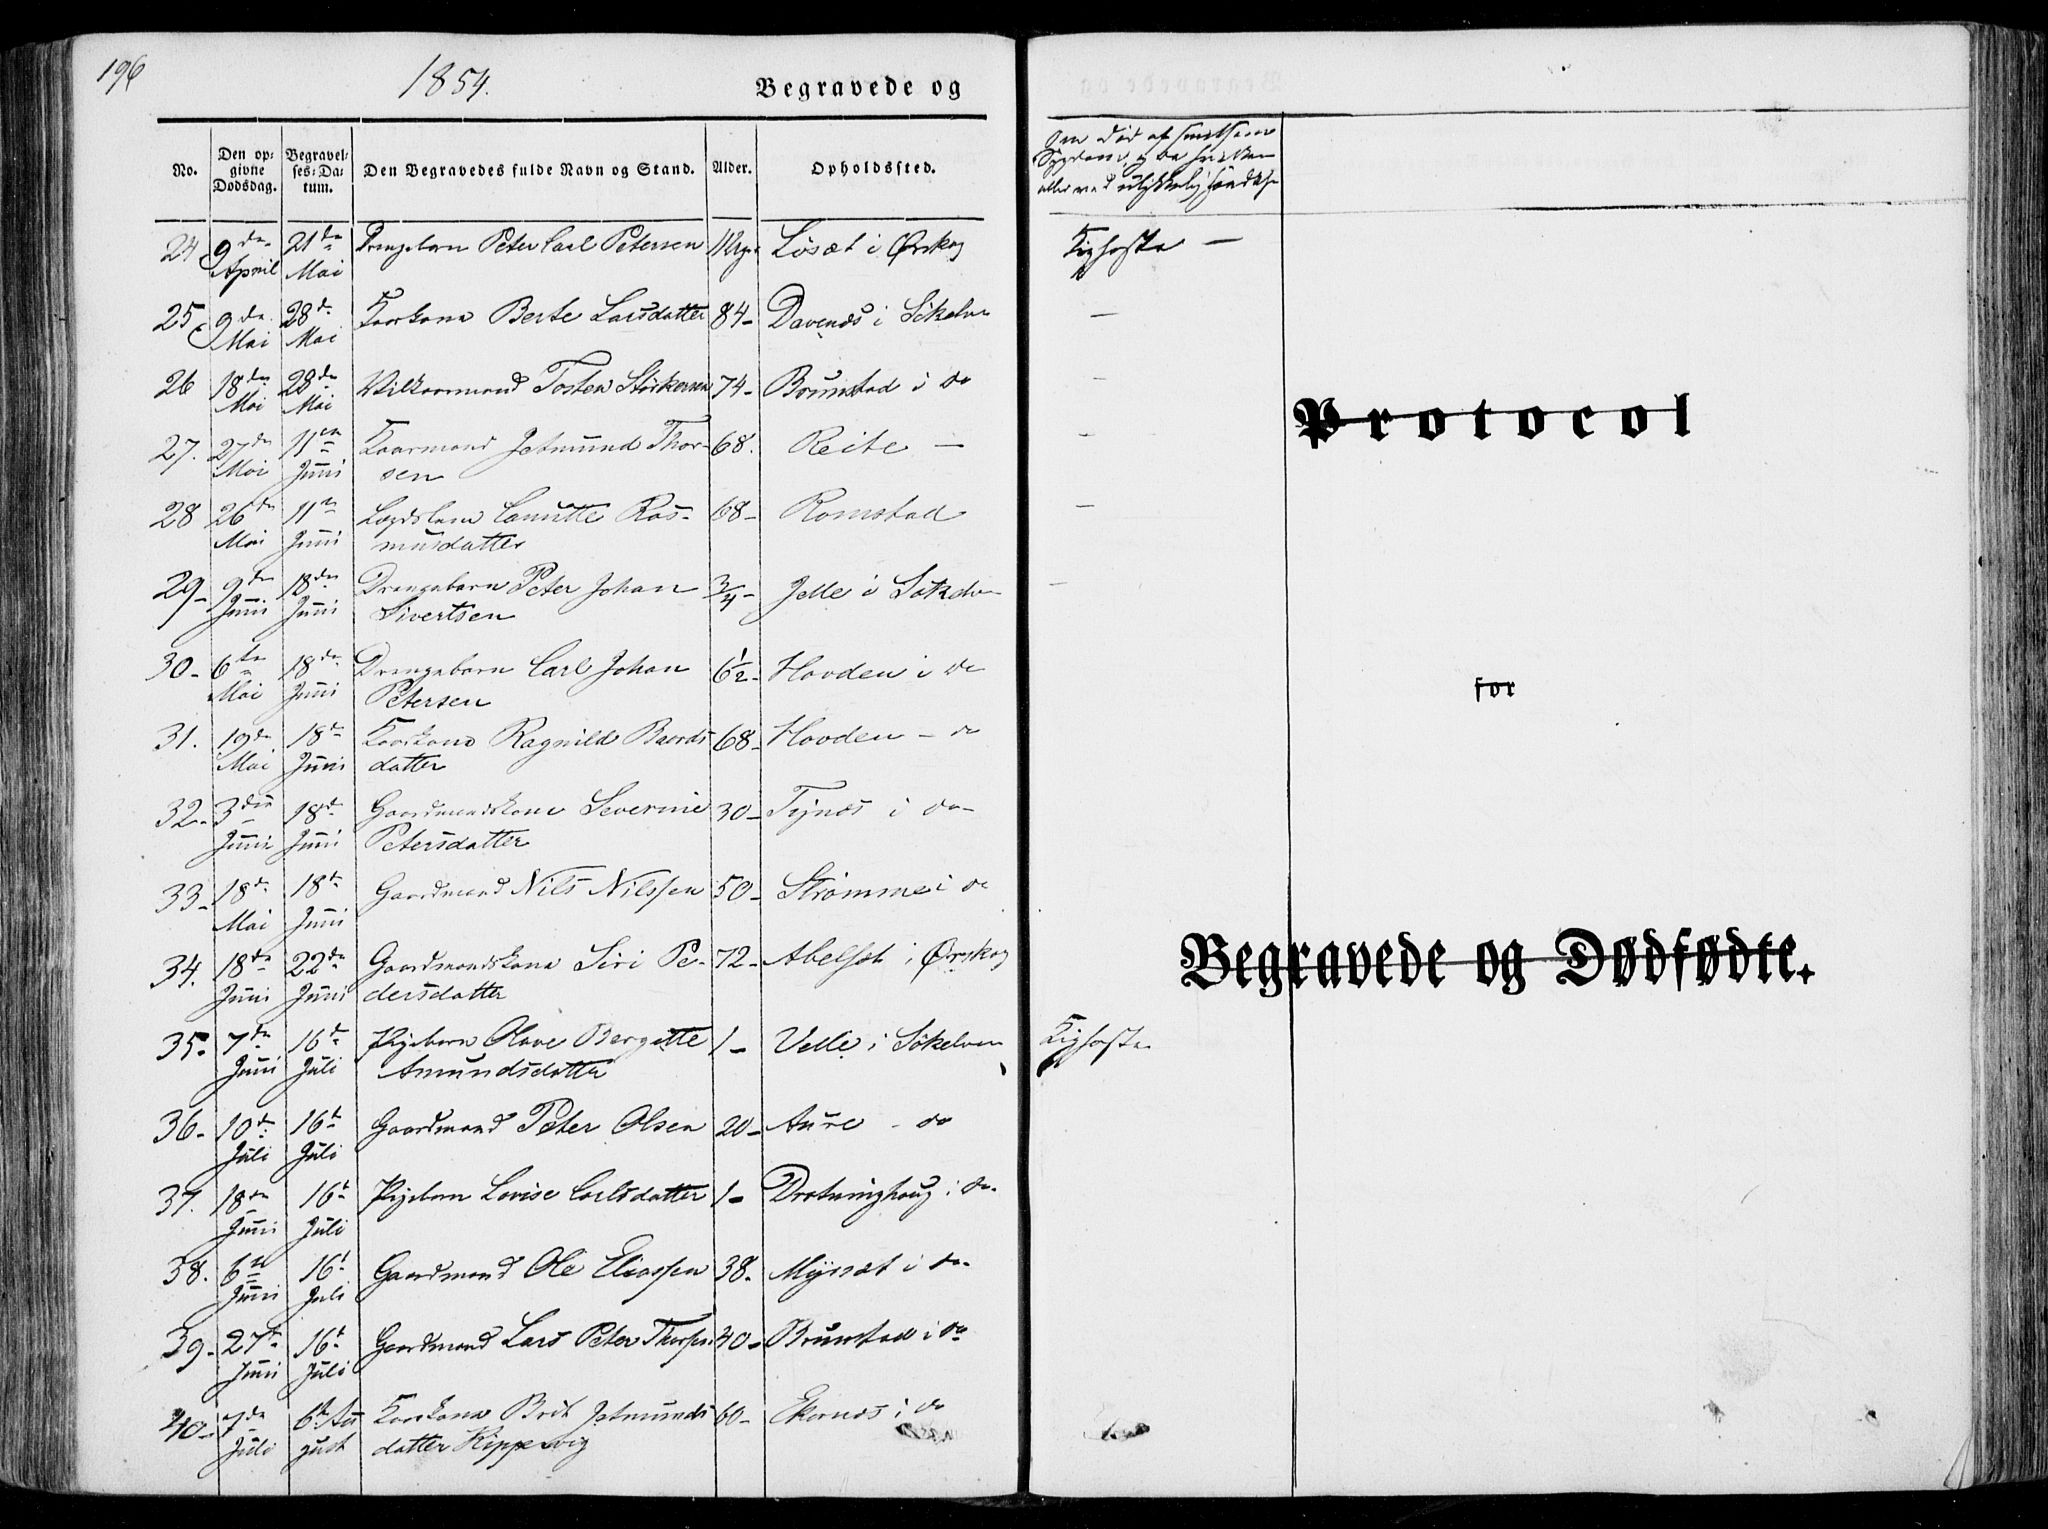 196
1854.
Begravede og
No.
Den opgivne Dødsdag.
Begravelses-Datum.
Den Begravedes fulde Navn og Stand.
Alder.
Opholdssted.
Om Død af smitsom
Sygdom, og da hvilken
eller ved ulykkelig Hændelse
24 9de 21de Drengebarn Peter Carl Petersen Løsæt i Ørskog Kighoste —
April Mai
25 9de 28de Kaarkone Berte Larsdatter 84- Davenæs i Søkelven —
Mai Mai
26 18de 28de Vilkaarmand Tosten Størkersen 74- Brunstad i do -
Mai Mai
27. 27de 11te Kaarmand Jetmund Thor- 68. Reite — -
Mai Juni sen
28 26de 11te Lægdslem Canutte Ras- 68- Romstad -
Mai Juni musdatter
29- 9de 18de Drengebarn Peter Johan 3/4- Jelle i Søkelven —
Juni Juni Sivertsen
30- 6te 18de Drengebarn Carl Johan 6½- Hovden i do
Mai Juni Petersen
31. 19de 18de Kaarkone Ragnild Baards 68- Hovden - do
Mai Juni datter
32- 3die 18de Gaardmandskone Severine 30- Tynæs i do-
Juni Juni Petersdatter
33- 18de 18de Gaardmand Nils Nilssen 50- Strømme i do
Mai Juni
34. 18de 22de Gaardmandskone Siri Pe- 72- Abelset i Ørskog
Juni Juni dersdatter
35- 7de 16de Pigebarn Olave Bergitte 1- Velle i Søkelven Kighoste
Juni Juli Amundsdatter
36- 10de 16de Gaardmand Peter Olsen 20- Aure - do
Juli Juli
37. 18de 16de Pigebarn Lovise Carlsdatter 1- Drotninghaug i do-
Juni Juli
38. 6te 16de Gaardmand Ole Eliassen 38- Myrset i do-
Juni Juli
39- 27de 16de Gaardmand Lars Peter Thorsen 40- Brunstad i do
Juni Juli
40- 7de 6te Au Kaarkone Brit Jetmunds 60- Ekornæs i do
Juli gust datter Kippervig
Protocol
for
Begravede og Dødfødte.